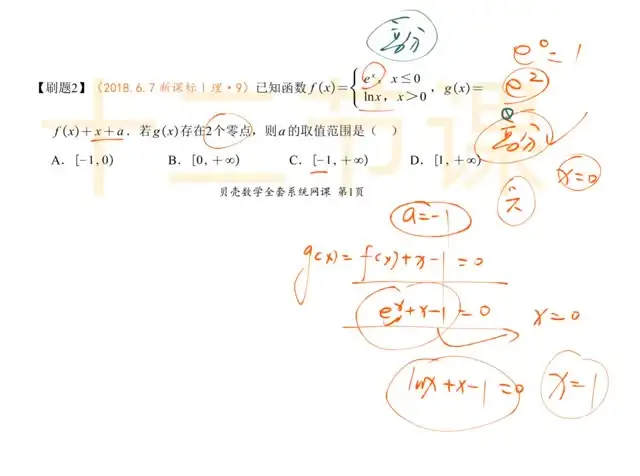 【刷题2】(2018.6.7新课标Ⅰ理·9)已知函数f(x)={e^x, x≤0
lnx, x>0, g(x)=
f(x)+x+a. 若g(x)存在2个零点, 则a的取值范围是( )
A. [-1,0) B. [0,+∞) C. [-1,+∞) D. [1,+∞)
贝壳数学全套系统网课 第1页
十二节课
e^0=1
e^2
x=0
a=-1
g(x)=f(x)+x-1=0
e^x+x-1=0 x=0
lnx+x-1=0 x=1